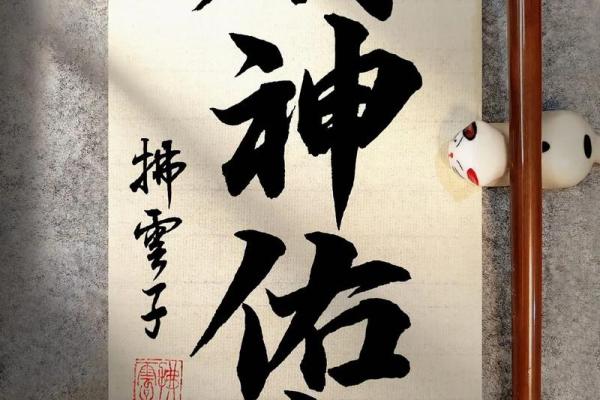 神佑
拂雲子